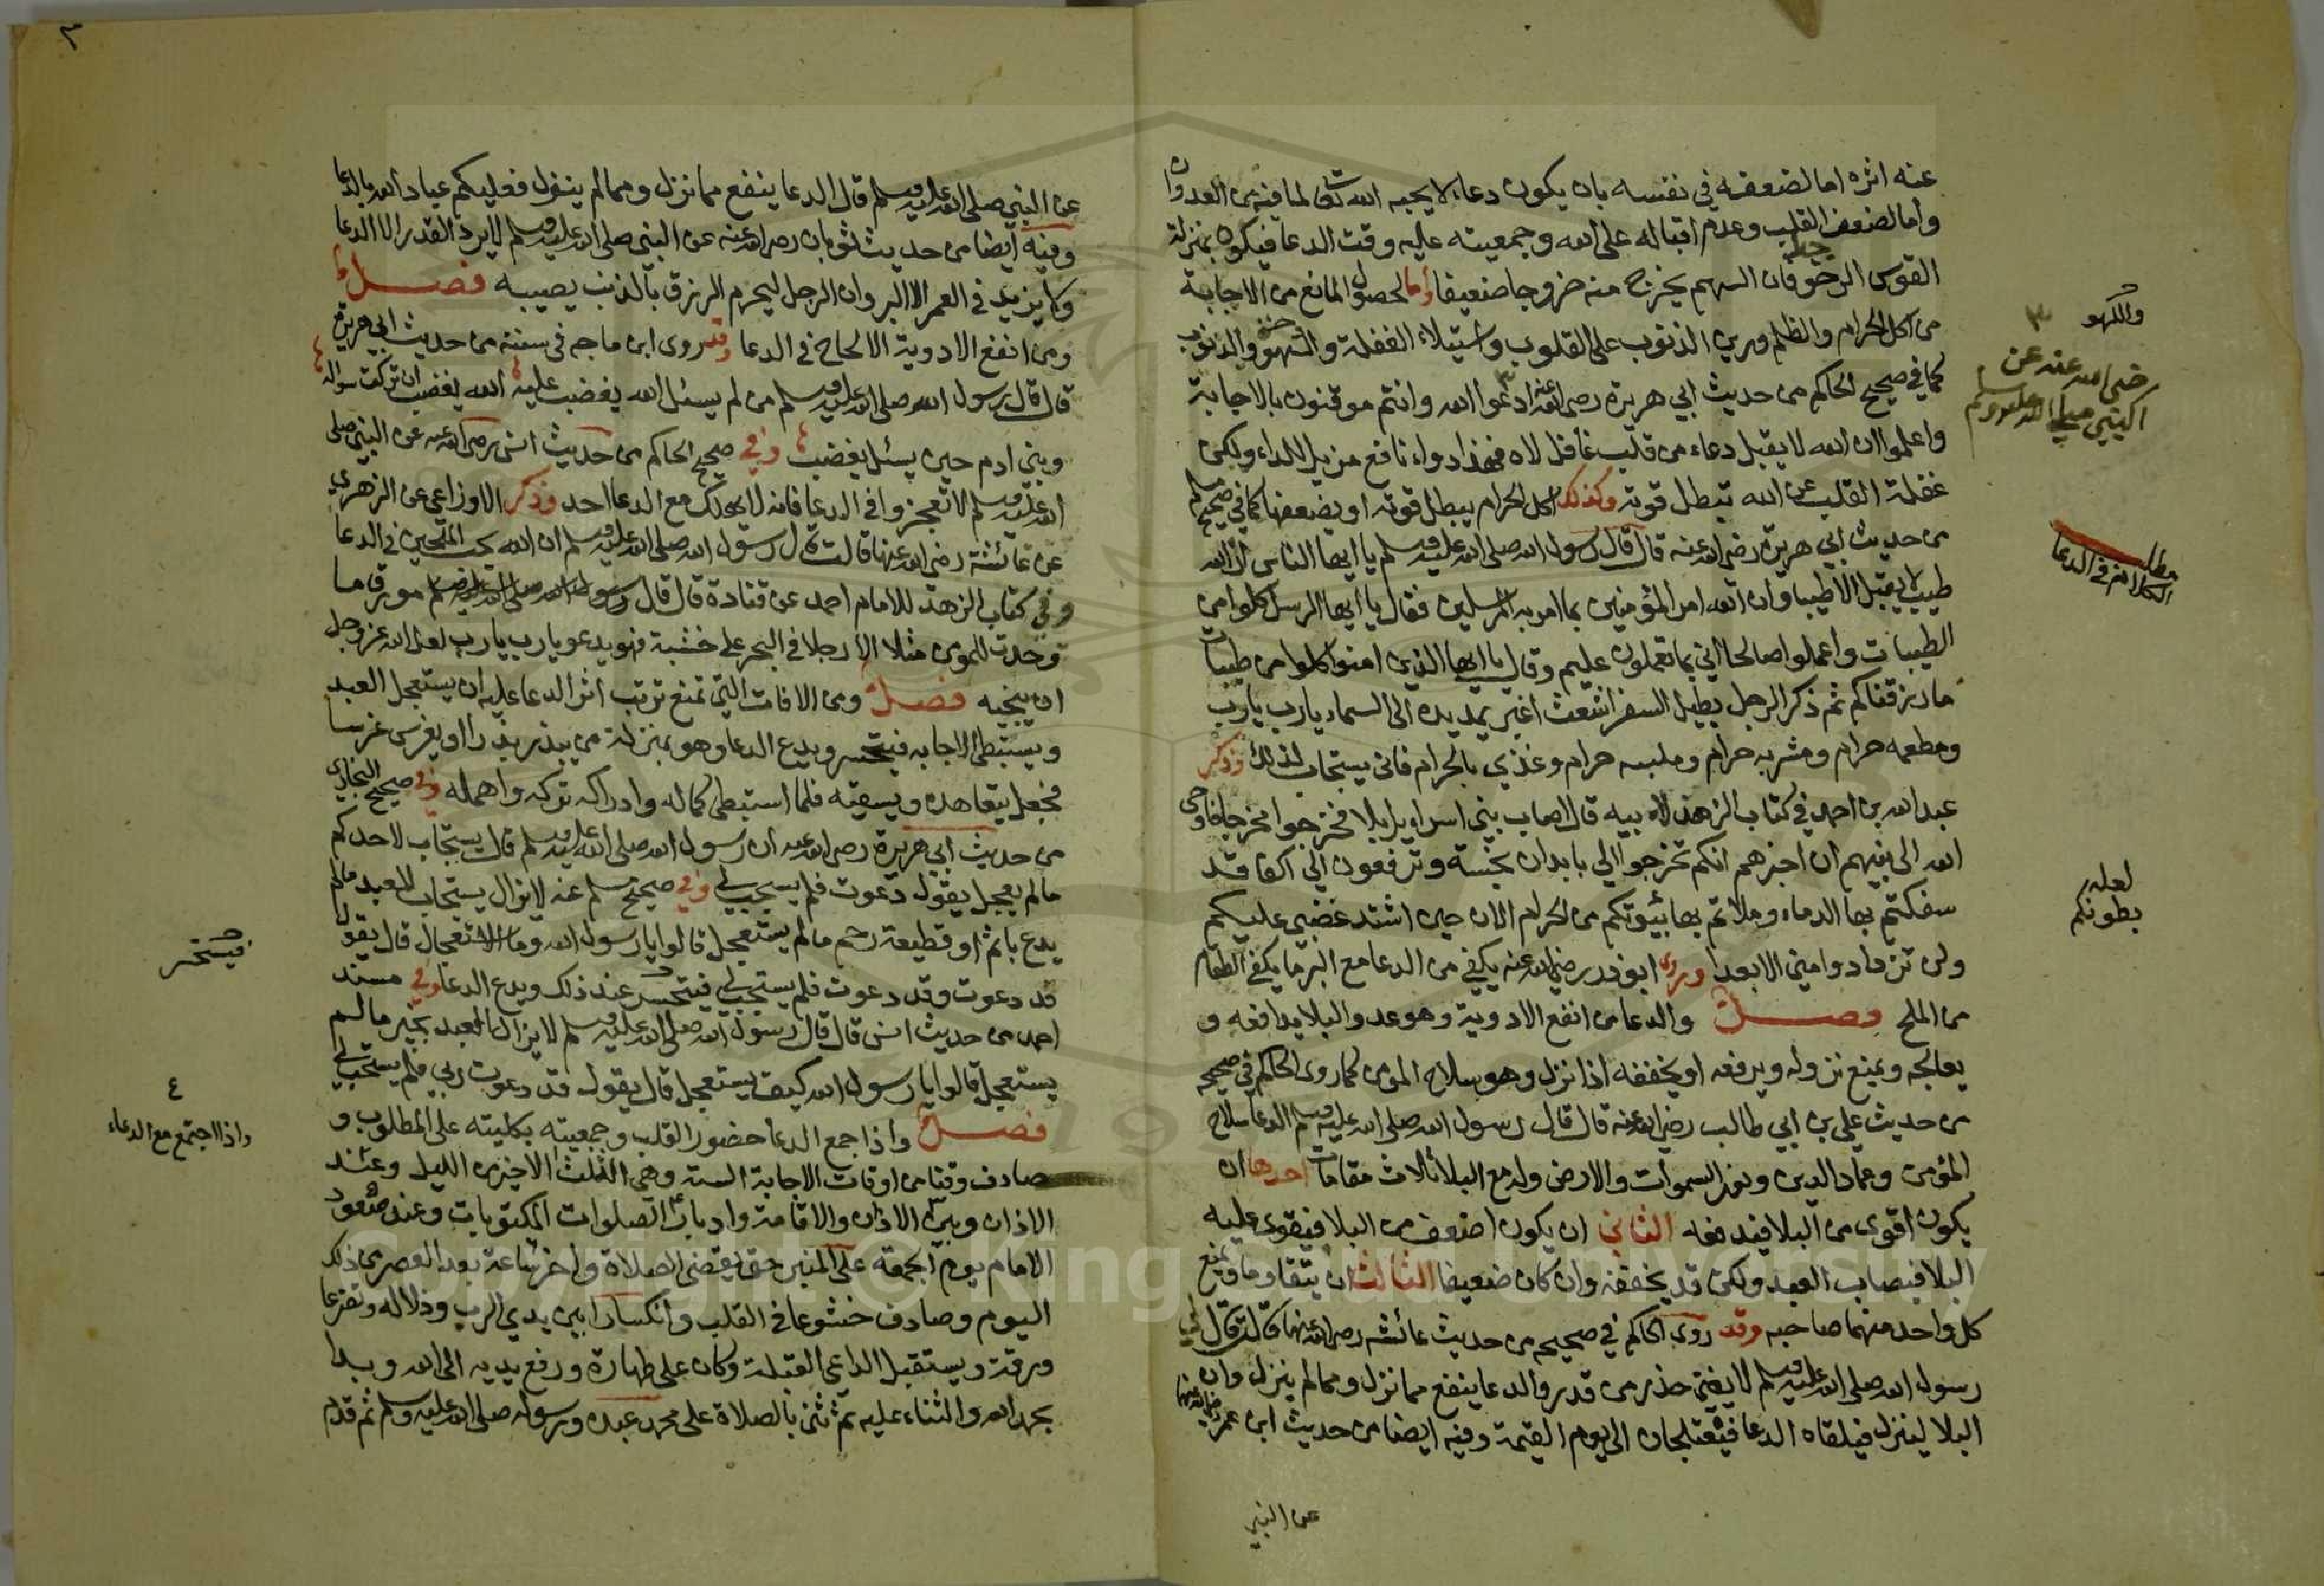 عنه اثره اما لضعفه في نفسه بان يكون دعاء لا يحبه الله تعالى لما فيه من العدوان
واما لضعف القلب وعدم اقباله على الله وجمعيته عليه وقت الدعا فيكون بمنزلة
القوس الرخو فان السهم يخرج منه خروجا ضعيفا وأما لحصول المانع من الاجابة
من اكل الحرام والظلم ورين الذنوب على القلوب واستيلاء الغفلة والسهو والذنوب
واللهو
كما في صحيح الحاكم من حديث ابي هريرة رضي الله عنه ادعوا الله وانتم موقنون بالاجابة
ضي الله عنه عن
النبي صلى الله عليه وسلم
واعلموا ان الله لا يقبل دعاء من قلب غافل لاه فهذا دواء نافع مزيل للداء ولكن
غفلة القلب عن الله تبطل قوته وكذلك اكل الحرام يبطل قوته او يضعفها كما في صحيح مسلم
من حديث ابي هريرة رضي الله عنه قال قال رسول الله صلى الله عليه وسلم يا ايها الناس ان الله
مطلب
في الدعا
طيب لا يقبل الا طيبا وان الله امر المؤمنين بما امر به المرسلين فقال يا ايها الرسل كلوا من
الطيبات واعملوا صالحا اني بما تعملون عليم وقال يا ايها الذين امنوا كلوا من طيبات
ما رزقناكم ثم ذكر الرجل يطيل السفر اشعث اغبر يمد يده الى السماء يارب يارب
ومطعمه حرام ومشربه حرام وملبسه حرام وغذي بالحرام فانى يستجاب لذلك وذكر
عبد الله بن احمد في كتاب الزهد لابيه قال اصاب بني اسرايل بلا فخرجوا مخرجا فاوحى
الله الى نبيهم ان اخبرهم انكم تخرجوا الي بابدان نجسة وترفعون الي اكفا قد
سفكتم بها الدماء وملاتم بها بيوتكم من الحرام الان حين اشتد غضبي عليكم
لعله
بطونكم
ولن تزدادوا مني الا بعدا وروى ابو ذر رضي الله عنه يكفي من الدعا مع البر ما يكفي الطعام
من الملح فصل والدعا من انفع الادوية وهو عدو البلا يدافعه و
يعالجه ويمنع نزوله ويرفعه او يخففه اذا نزل وهو سلاح المومن كما روى الحاكم في صحيحه
من حديث علي بن ابي طالب رضي الله عنه قال قال رسول الله صلى الله عليه وسلم الدعا سلاح
المؤمن وعماد الدين ونور السموات والارض وله مع البلا ثلاث مقامات احدها ان
يكون اقوى من البلا فيدفعه الثاني ان يكون اضعف من البلا فيقوى عليه
البلا فيصاب العبد ولكن قد يخففه وان كان ضعيفا الثالث ان يتقاوما ويمنع
كل واحد منهما صاحبه وقد روى الحاكم في صحيحه من حديث عائشه رضي الله عنها قالت قال لي
رسول الله صلى الله عليه وسلم لا يغني حذر من قدر والدعا ينفع مما نزل ومما لم ينزل وان
البلا لينزل فيلقاه الدعا فيعتلجان الى يوم القيمة وفيه ايضا من حديث ابن عمر رضي الله عنهما
عن النبي
٣
عن النبي صلى الله عليه وسلم قال الدعا ينفع مما نزل ومما لم ينزل فعليكم عباد الله بالدعا
وفيه ايضا من حديث ثوبان رضي الله عنه عن النبي صلى الله عليه وسلم لا يرد القدر الا الدعا
ولا يزيد في العمر الا البر وان الرجل ليحرم الرزق بالذنب يصيبه فصل
ومن انفع الادوية الالحاح في الدعا وقد روى ابن ماجه في سننه من حديث ابي هريرة
قال قال رسول الله صلى الله عليه وسلم من لم يسئل الله يغضب عليه الله يغضب ان تركت سواله
وبني ادم حين يسئل يغضب وفي صحيح الحاكم من حديث انس رضي الله عنه عن النبي صلى
الله عليه وسلم لا تعجزوا في الدعا فانه لا يهلك مع الدعا احد وذكر الاوزاعي عن الزهري
عن عائشة رضي الله عنها قالت قال رسول الله صلى الله عليه وسلم ان الله يحب الملحين في الدعا
وفي كتاب الزهد للامام احمد عن قتادة قال قال مورق ما
وجدت للمومن مثلا الا رجلا في البحر على خشبة فهو يدعو يارب يارب لعل الله عز وجل
ان ينجيه فصل ومن الافات التي تمنع ترتب اثر الدعا عليه ان يستعجل العبد
ويستبطئ الاجابه فيتحسر ويدع الدعا وهو بمنزلة من بذر بذرا او يغرس غرسا
فجعل يتعاهده ويسقيه فلما استبطى كماله وادراكه تركه واهمله وفي صحيح البخاري
من حديث ابي هريرة رضي الله عنه ان رسول الله صلى الله عليه وسلم قال يستجاب لاحدكم
مالم يعجل يقول دعوت فلم يستجب لي وفي صحيح مسلم عنه لا يزال يستجاب للعبد مالم
يدع باثم او قطيعة رحم مالم يستعجل قالوا يا رسول الله وما الاستعجال قال يقول
فيستحسر
قد دعوت وقد دعوت فلم يستجب لي فيتحسر عند ذلك ويدع الدعا وفي مسند
احمد من حديث انس قال قال رسول الله صلى الله عليه وسلم لا يزال العبد بخير مالم
يستعجل قالوا يا رسول الله كيف يستعجل قال يقول قد دعوت ربي فلم يستجب لي
٤
واذا اجتمع مع الدعاء
فصل واذا جمع الدعا حضور القلب وجمعيته بكليته على المطلوب و
صادف وقتا من اوقات الاجابة الستة وهي الثلث الاخير من الليل وعند
الاذان وبين الاذان والاقامة وادبار الصلوات المكتوبات وعند صعود
الامام يوم الجمعة على المنبر حتى تقضى الصلاة واخر ساعة بعد العصر من ذلك
اليوم وصادف خشوعا في القلب وانكسارا بين يدي الرب وذلا له وتضرعا
ورقة ويستقبل الداعي القبلة وكان على طهارة ورفع يديه الى الله وبدا
بحمد الله والثناء عليه ثم ثنى بالصلاة على محمد عبده ورسوله صلى الله عليه وسلم ثم قدم
Copyright © King Saud University